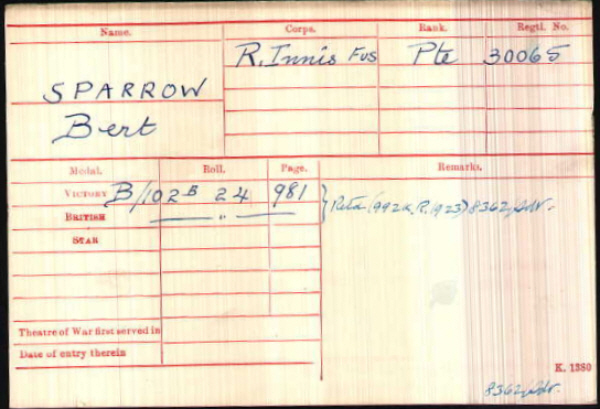 Name. Corps. Rank. Regtl. No.
R. Innis Fus Pte 30065
SPARROW
Bert
Medal. Roll. Page. Remarks.
VICTORY B/102B 24 981
BRITISH — " —
STAR
Theatre of War first served in
Date of entry therein
K. 1380